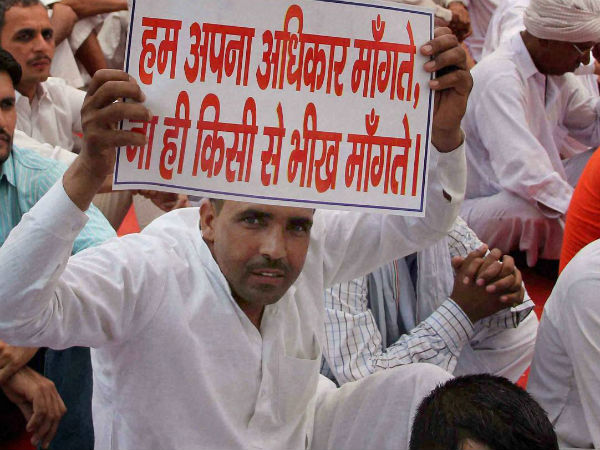 हम अपना अधिकार माँगते,
ना ही किसी से भीख माँगते।